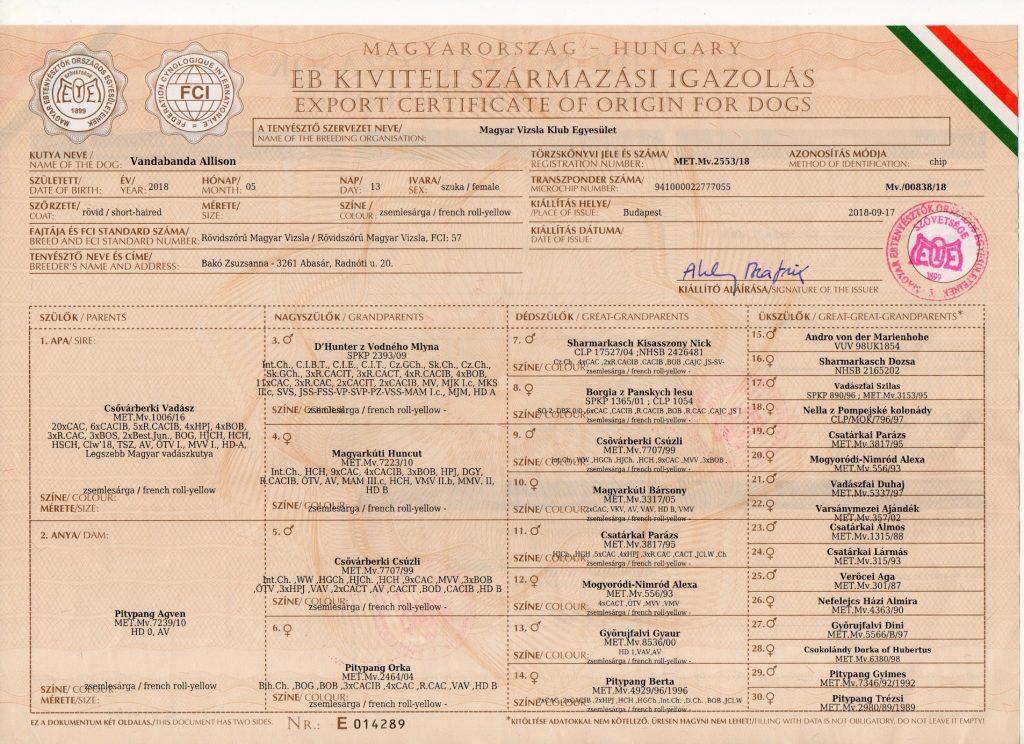 MAGYARORSZÁG – HUNGARY
EB KIVITELI SZÁRMAZÁSI IGAZOLÁS
EXPORT CERTIFICATE OF ORIGIN FOR DOGS
MAGYAR EBTENYÉSZTŐK ORSZÁGOS EGYESÜLETEINEK
SZÖVETSÉGE
MEOE
1899
FEDERATION CYNOLOGIQUE INTERNATIONALE
FCI
A TENYÉSZTŐ SZERVEZET NEVE/
NAME OF THE BREEDING ORGANISATION: Magyar Vizsla Klub Egyesület
KUTYA NEVE /
NAME OF THE DOG: Vandabanda Allison
TÖRZSKÖNYVI JELE ÉS SZÁMA/
REGISTRATION NUMBER: MET.Mv.2553/18
AZONOSÍTÁS MÓDJA
METHOD OF IDENTIFICATION: chip
SZÜLETETT/ ÉV/ HÓNAP/ NAP/ IVARA/
DATE OF BIRTH: YEAR: 2018 MONTH: 05 DAY: 13 SEX: szuka / female
TRANSZPONDER SZÁMA/
MICROCHIP NUMBER: 941000022777055 Mv./00838/18
SZŐRZETE/ MÉRETE/ SZÍNE /
COAT: rövid / short-haired SIZE: COLOUR: zsemlesárga / french roll-yellow
KIÁLLÍTÁS HELYE/
/PLACE OF ISSUE: Budapest 2018-09-17
FAJTÁJA ÉS FCI STANDARD SZÁMA/
BREED AND FCI STANDARD NUMBER: Rövidszőrű Magyar Vizsla / Rövidszőrű Magyar Vizsla, FCI: 57
KIÁLLÍTÁS DÁTUMA/
DATE OF ISSUE:
TENYÉSZTŐ NEVE ÉS CÍME/
BREEDER'S NAME AND ADDRESS: Bakó Zsuzsanna - 3261 Abasár, Radnóti u. 20.
KIÁLLÍTÓ ALÁÍRÁSA/SIGNATURE OF THE ISSUER
MAGYAR EBTENYÉSZTŐK ORSZÁGOS EGYESÜLETEINEK
SZÖVETSÉGE
MEOE
1899
3.
SZÜLŐK / PARENTS
1. APA/ SIRE:
Csővárberki Vadász
MET.Mv.1006/16
20xCAC, 6xCACIB, 5xR.CACIB, 4xHPJ, 4xBOB,
3xR.CAC, 3xBOS, 2xBest.Jun., BOG, HJCH, HCH,
HSCH, Clw'18, TSZ, AV, ÖTV I., MVV I., HD-A,
Legszebb Magyar vadászkutya
zsemlesárga / french roll-yellow
SZÍNE/ COLOUR:
MÉRETE/SIZE:
2. ANYA/ DAM:
Pitypang Ágven
MET.Mv.7239/10
HD 0, AV
zsemlesárga / french roll-yellow
SZÍNE/ COLOUR:
MÉRETE/SIZE:
NAGYSZÜLŐK / GRANDPARENTS
3. ♂
D'Hunter z Vodného Mlyna
SPKP 2393/09
Int.Ch., C.I.B.T., C.I.E., C.I.T., Cz.GCh., Sk.Ch., Cz.Ch.,
Sk.GCh., 3xR.CACIT, 3xR.CACT, 4xR.CACIB, 4xBOB,
11xCAC, 3xR.CAC, 2xCACIT, 2xCACIB, MV, MJK I.c, MKS
II.c, SVS, JSS-FSS-VP-SVP-PZ-VSS-MAM I.c., MJM, HD A
SZÍNE/ COLOUR: zsemlesárga / french roll-yellow -
4. ♀
Magyarkúti Huncut
MET.Mv.7223/10
Int.Ch., HCH, 9xCAC, 4xCACIB, 3xBOB, HPJ, DGY,
R.CACIB, ÖTV, AV, MAM III.c, HCH, VMV II.b, MMV, II,
HD B
SZÍNE/ COLOUR: zsemlesárga / french roll-yellow -
5. ♂
Csővárberki Csúzli
MET.Mv.7707/99
Int.Ch. ,WW ,HGCh ,HJCh. ,HCH ,9xCAC ,MVV ,3xBOB
,ÖTV ,3xHPJ ,VAV ,2xCACT ,AV ,CACIT ,BOD ,CACIB ,HD B
SZÍNE/ COLOUR: zsemlesárga / french roll-yellow -
6. ♀
Pitypang Orka
MET.Mv.2464/04
BJh.Ch. ,BOG ,BOB ,3xCACIB ,4xCAC ,R.CAC ,VAV ,HD B
SZÍNE/ COLOUR: zsemlesárga / french roll-yellow -
DÉDSZÜLŐK / GREAT-GRANDPARENTS
7. ♂
Sharmarkasch Kisasszony Nick
CLP 17527/04 ;NHSB 2426481
Cz.Ch. ,4xCAC ,2xR.CACIB ,CACIB ,BOB ,CAJC ,JS-SV-
SZÍNE/ COLOUR: zsemlesárga / french roll-yellow -
8. ♀
Borgia z Panskych lesu
SPKP 1365/01 ; CLP 1054
SZÍNE/ COLOUR: zsemlesárga / french roll-yellow -
9. ♂
Csővárberki Csúzli
MET.Mv.7707/99
Int.Ch. ,WW ,HGCh ,HJCh. ,HCH ,9xCAC ,MVV ,3xBOB ,
SZÍNE/ COLOUR: zsemlesárga / french roll-yellow -
10. ♀
Magyarkúti Bársony
MET.Mv.3317/05
2xCAC, VKV, AV, VAV, HD B, VMV
SZÍNE/ COLOUR: zsemlesárga / french roll-yellow -
11. ♂
Csatárkai Parázs
MET.Mv.3817/95
HJCh. ,HCH ,5xCAC ,4xHPJ ,3xR.CAC ,CACT ,JCLW ,Ch
SZÍNE/ COLOUR: zsemlesárga / french roll-yellow -
12. ♀
Mogyoródi-Nimród Alexa
MET.Mv.556/93
4xCACT ,ÖTV ,MVV ,VMV
SZÍNE/ COLOUR: zsemlesárga / french roll-yellow -
13. ♂
Győrujfalvi Gyaur
MET.Mv.8536/00
HD 1,VAV,AV
SZÍNE/ COLOUR: zsemlesárga / french roll-yellow -
14. ♀
Pitypang Berta
MET.Mv.4929/96/1996
SZÍNE/ COLOUR: zsemlesárga / french roll-yellow -
ÜKSZÜLŐK / GREAT-GREAT-GRANDPARENTS*
15. ♂ Andro von der Marienhohe
VUV 98UK1854
16. ♀ Sharmarkasch Dozsa
NHSB 2165202
17. ♂ Vadászfai Szilas
SPKP 890/96 ; MET.Mv.3153/95
18. ♀ Nella z Pompejské kolonády
CLP/MOK/796/97
19. ♂ Csatárkai Parázs
MET.Mv.3817/95
20. ♀ Mogyoródi-Nimród Alexa
MET.Mv.556/93
21. ♂ Vadászfai Duhaj
MET.Mv.5337/97
22. ♀ Varsánymezei Ajándék
MET.Mv.357/02
23. ♂ Csatárkai Álmos
MET.Mv.1315/88
24. ♀ Csatárkai Lármás
MET.Mv.315/93
25. ♂ Verőcei Aga
MET.Mv.301/87
26. ♀ Nefelejcs Házi Almira
MET.Mv.4363/90
27. ♂ Győrujfalvi Dini
MET.Mv.5566/B/97
28. ♀ Csokolándy Dorka of Hubertus
MET.Mv.6380/98
29. ♂ Pitypang Gyimes
MET.Mv.7346/92/1992
30. ♀ Pitypang Trézsi
MET.Mv.2980/89/1989
EZ A DOKUMENTUM KÉT OLDALAS./THIS DOCUMENT HAS TWO SIDES.
NR.: E 014289
*KITÖLTÉSE ADATOKKAL NEM KÖTELEZŐ. ÜRESEN HAGYNI NEM LEHET!/FILLING WITH DATA IS NOT OBLIGATORY. DO NOT LEAVE IT EMPTY!